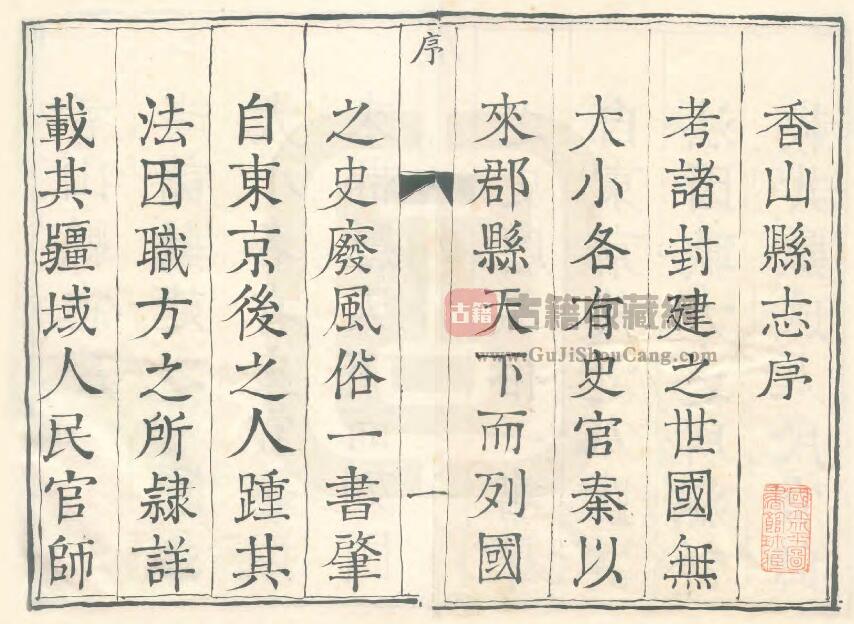 香山縣志序
考諸封建之世國無
大小各有史官秦以
來郡縣天下而列國
序
一
之史廢風俗一書肇
自東京後之人踵其
法因職方之所隸詳
載其疆域人民官師
古籍
古籍收藏網
www.GuJiShouCang.com